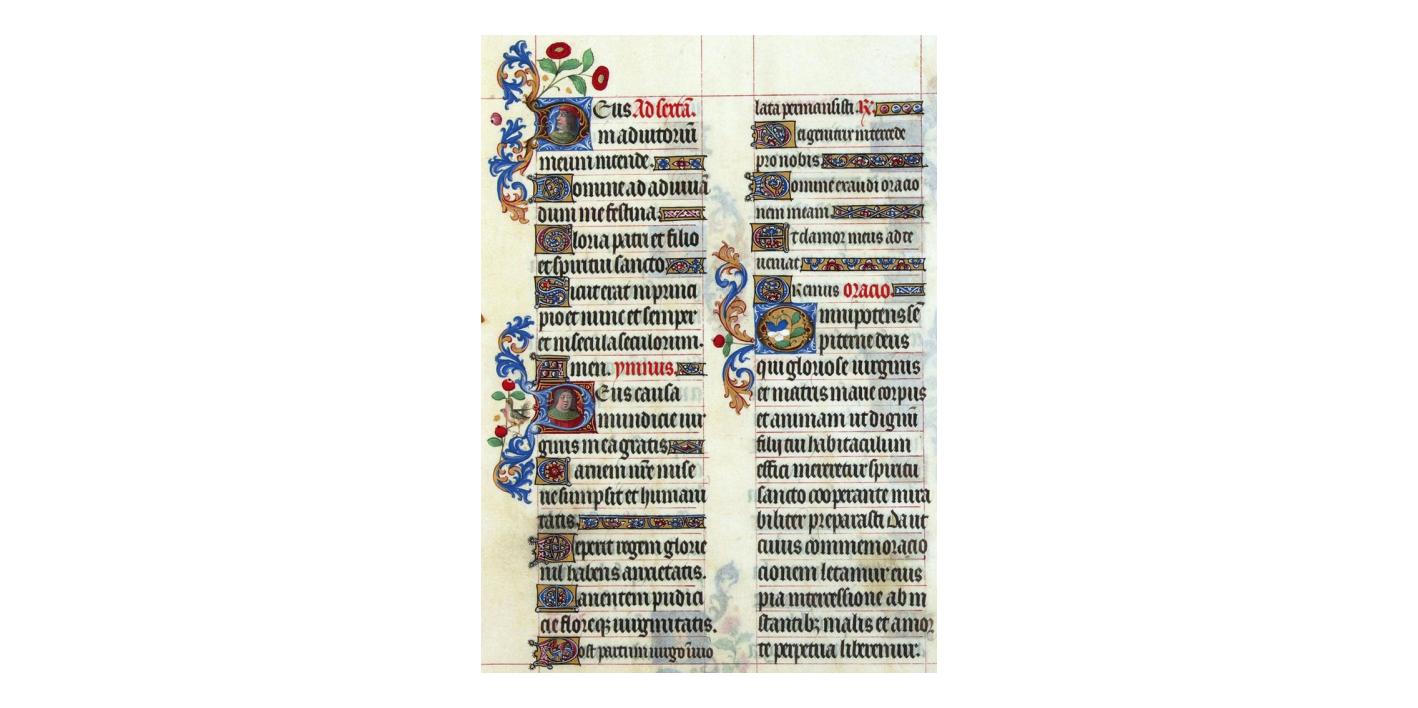 Deus Ad sextā.
in adiutoriū
meum intende.
Domine ad adiuuā
dum me festina.
Gloria patri et filio
et spiritui sancto
Sicut erat in princi
pio et nunc et semper
et in secula seculorum.
Amen. ymnus.
Deus causa
mundicie uir
ginis mea gratis
Carnem nr̄e mise
rie sumpsit et humani
tatis.
Peperit regem glorie
nil habens anxietatis.
Manentem pudici
cie floreqz uirginitatis.
Post partum uirgo īuio
lata permansisti. R.
Dei genitrix intercede
pro nobis
Domine exaudi oracio
nem meam.
Et clamor meus ad te
ueniat
Oremus oracio.
Omnipotens sē
piterne deus
qui gloriose uirginis
et matris marie corpus
et animam ut dignū
filij tui habitaculum
effici mereretur spiritu
sancto cooperante mira
biliter preparasti Da ut
cuius commemoracio
cionem letamur eius
pia intercessione ab in
stantibz malis et a mor
te perpetua liberemur.